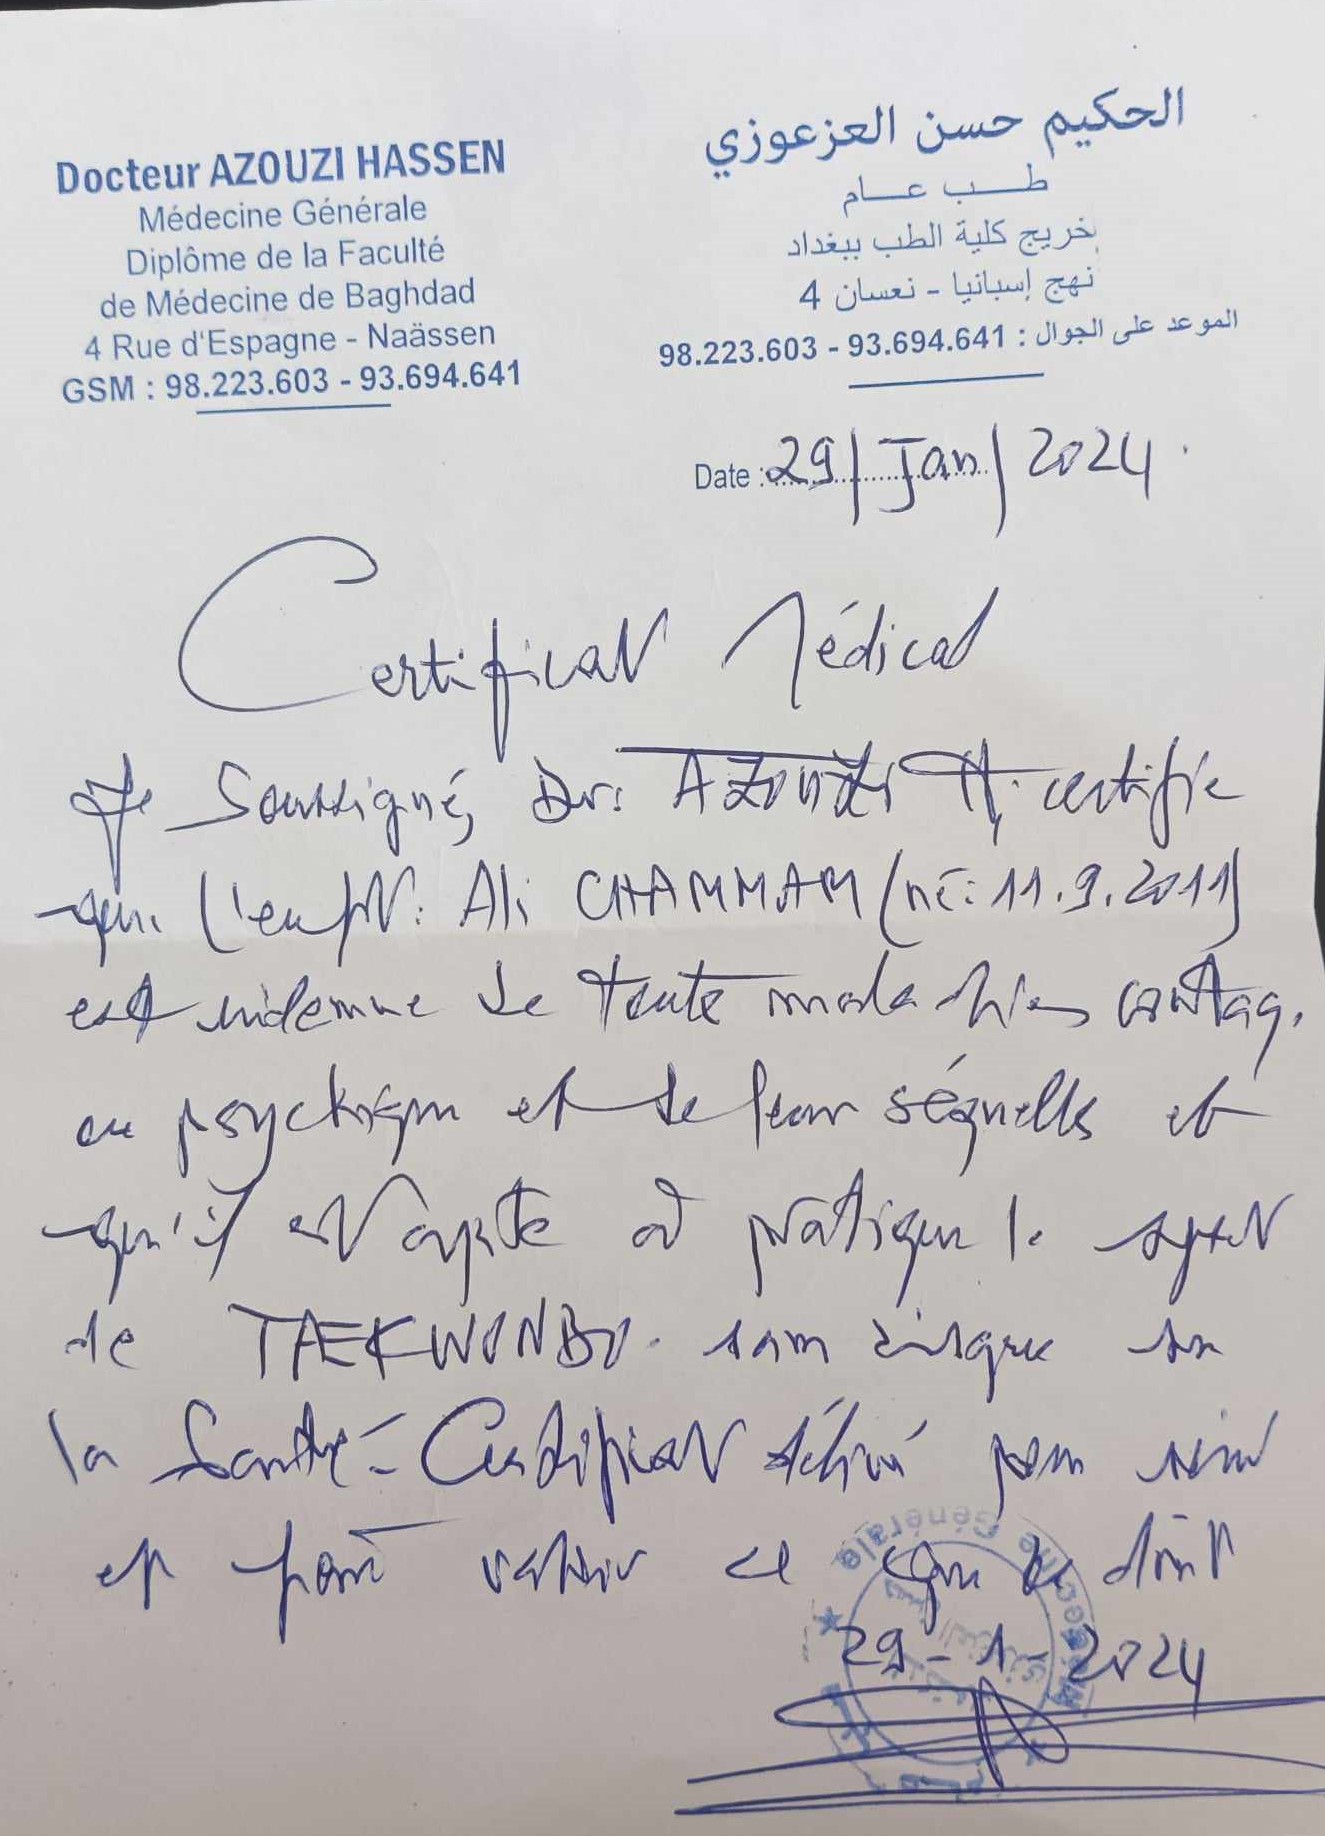 Docteur AZOUZI HASSEN
Médecine Générale
Diplôme de la Faculté
de Médecine de Baghdad
4 Rue d'Espagne - Naässen
GSM : 98.223.603 - 93.694.641
الحكيم حسن العزعوزي
طب عام
خريج كلية الطب ببغداد
4 نهج إسبانيا - نعسان
الموعد على الجوال : 93.694.641 - 98.223.603
Date : 29/Jan/2024.
Certificat Médical
Je Soussigné, Dr: AZOUZI H. certifie
que l'enft: Ali CHAMMAM (né: 11.9.2011)
est indemne de toute maladies contag.
ou psychiqu et de leur séquelles et
qu'il est apte à pratiquer le sport
de TAEKWONDO. sans risque sur
la Santé - Certificat délivré pour servir
et faire valoir ce que de droit
29-1-2024
Médecine Générale